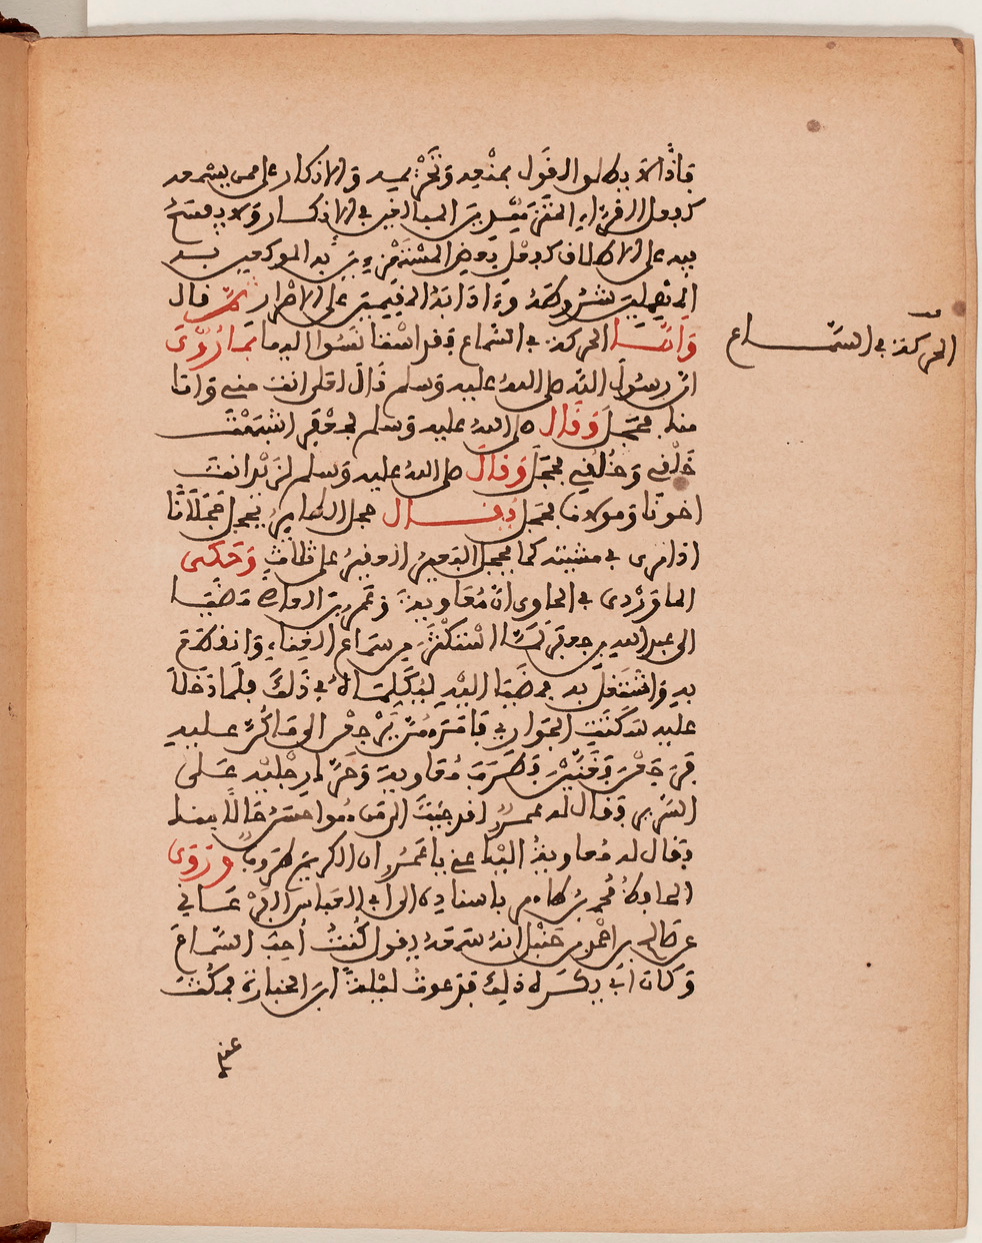 فإذا لا يطلق القول بمنعه وتحريمه والانكار على من يسمعه
كفعل القراء المتقدمين المبالغين في الانكار ولا يفسح
فيه على الاطلاق كفعل بعض المستهزءين به المهملين
شروطه وءادابه المقيمين على الاصرار ثم قال
الحركة في السماع
وأما الحركة في السماع فقد استأنسوا لها بما روي
ان رسول الله صلى الله عليه وسلم قال لعلي انت مني وانا
منك فحجل وقال صلى الله عليه وسلم لجعفر اشبهت
خلقي وخلقي فحجل وقال صلى الله عليه وسلم لزيد انت
اخونا ومولانا فحجل يقال حجل الطاير يحجل حجلانا
اذا نزى في مشيته كما يحجل البعير العقير على ثلاث وحكى
الماوردي في الحاوي ان معاوية وعمرو بن العاص مضيا
الى عبد الله بن جعفر لما استكثر من سماع الغناء وانقطع
به واشتغل به فمضيا اليه ليكلماه في ذلك فلما دخلا
عليه سكتت الجواري فامره معاوية يرجعن الى ما كن عليه
فرجعن فغنين فطرب معاوية وحرك رجليه على
السرير فقال له عمرو ان من جئت تلحاه احسن حالا منك
فقال له معاوية اليك عني يا عمرو ان الكريم طروب وروى
الحافظ محمد بن طاهر باسناده الى ابي العباس الفرغاني
عن صالح بن احمد بن حنبل انه سمعه يقول كنت أحب السماع
وكان ابي يكره ذلك فوعدت ليلة ابن الخبازة فمكث
عندي